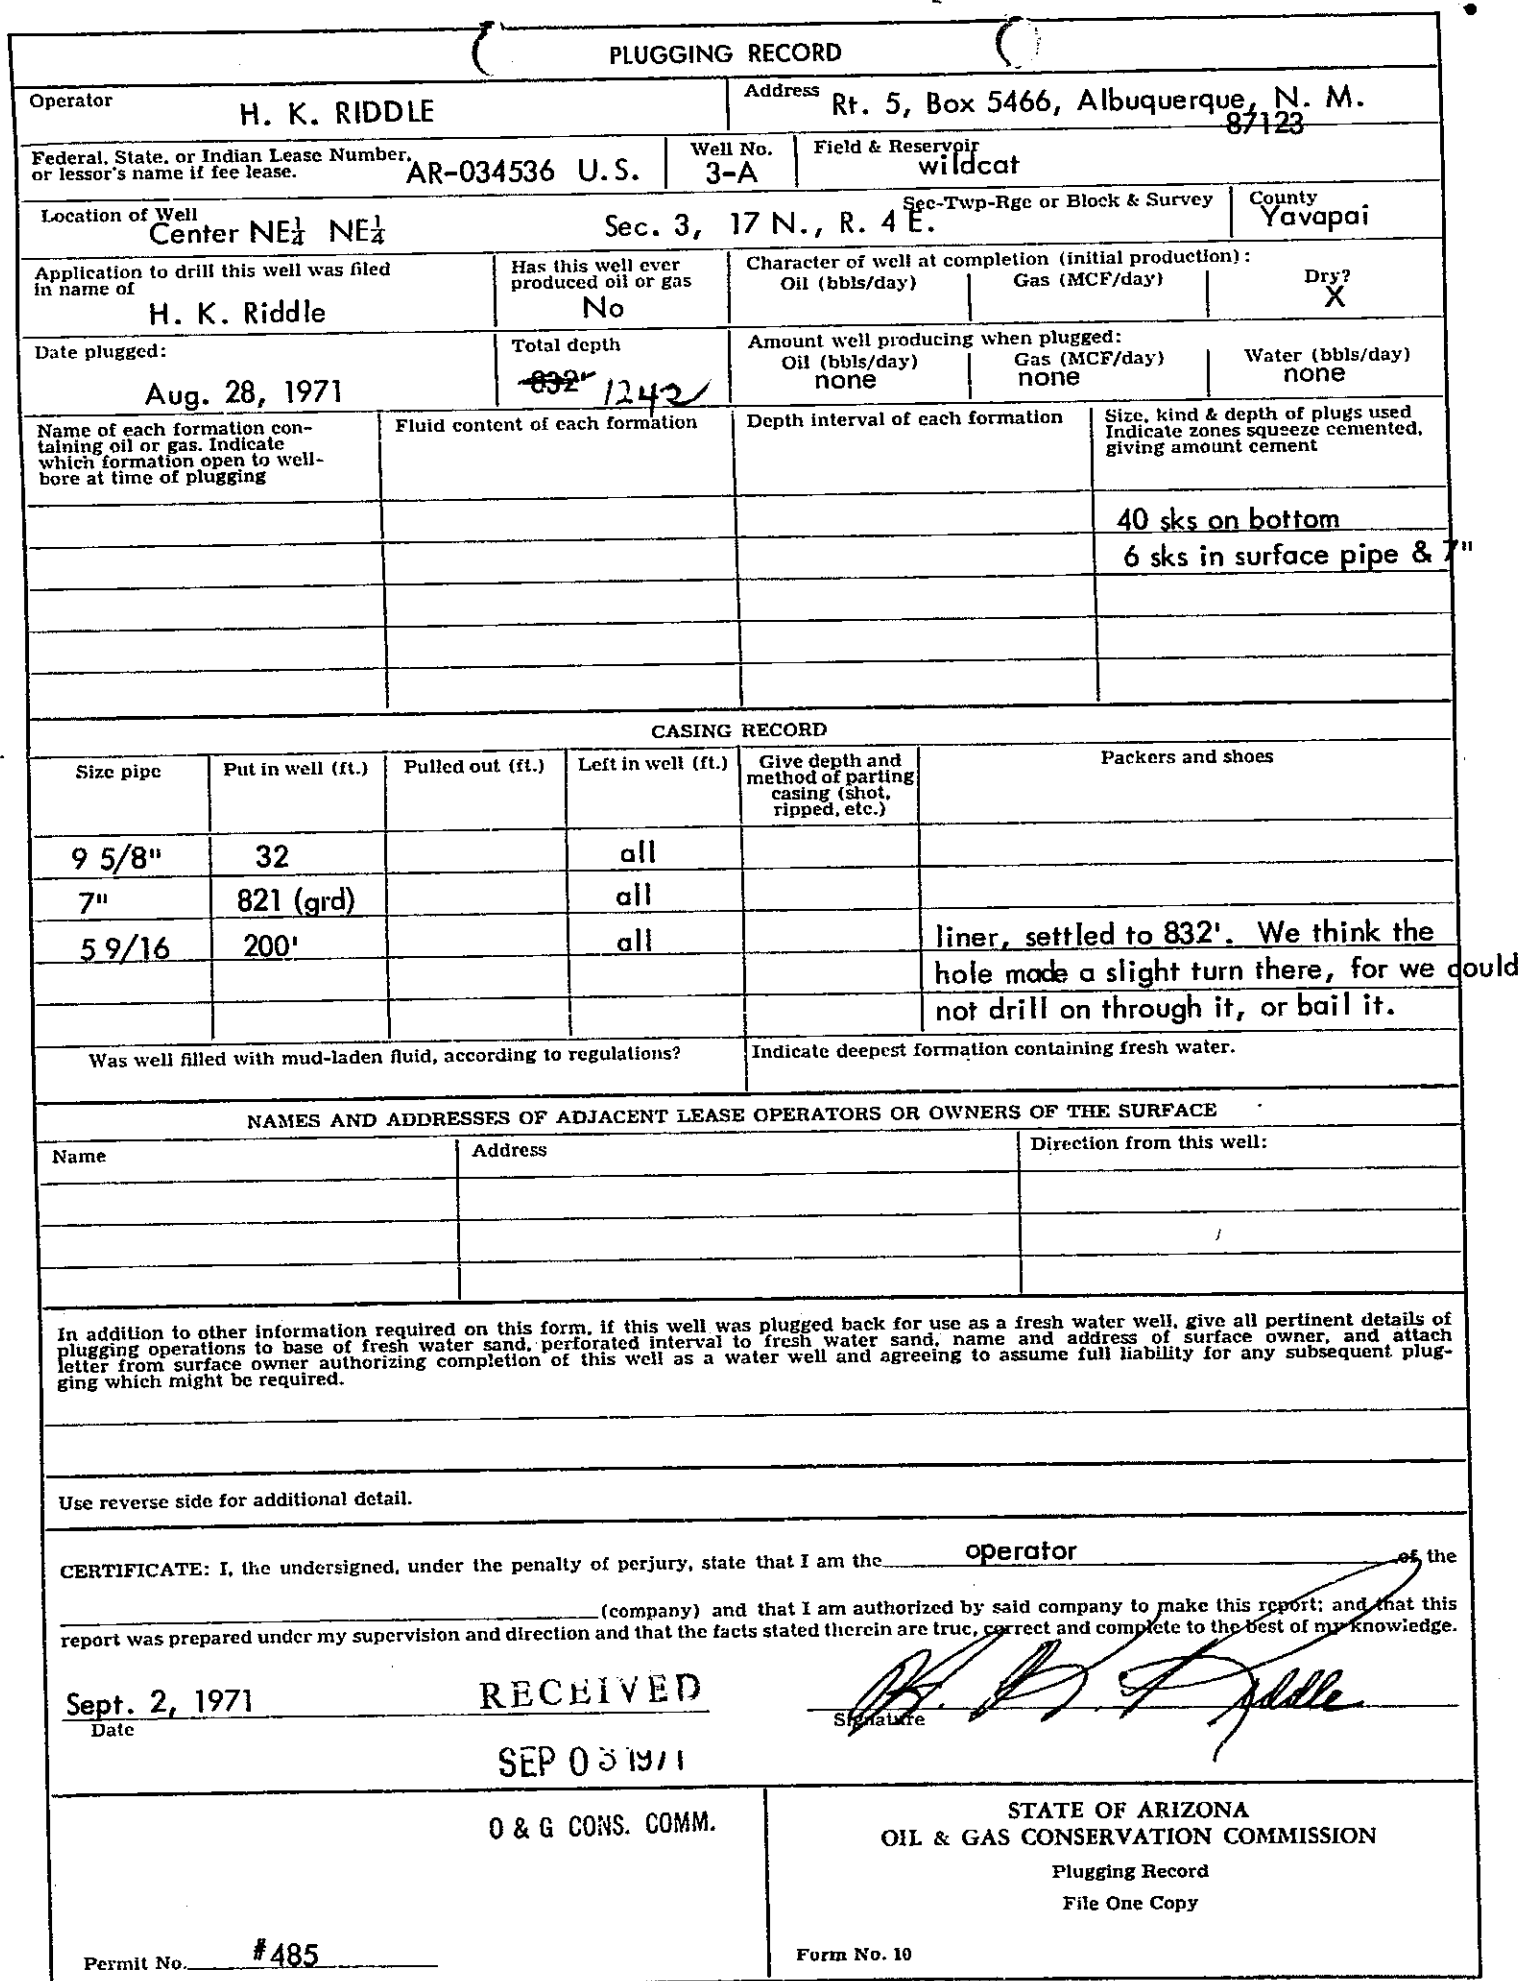 PLUGGING RECORD
Operator
H. K. RIDDLE
Address
Rt. 5, Box 5466, Albuquerque, N. M.
87123
Federal, State, or Indian Lease Number,
or lessor's name if fee lease.
AR-034536 U.S.
Well No.
3-A
Field & Reservoir
wildcat
Location of Well
Center NE¼ NE¼
Sec-Twp-Rge or Block & Survey
Sec. 3, 17 N., R. 4 E.
County
Yavapai
Application to drill this well was filed
in name of
H. K. Riddle
Has this well ever
produced oil or gas
No
Character of well at completion (initial production):
Oil (bbls/day)
Gas (MCF/day)
Dry?
X
Date plugged:
Aug. 28, 1971
Total depth
832' 1242
Amount well producing when plugged:
Oil (bbls/day)
none
Gas (MCF/day)
none
Water (bbls/day)
none
Name of each formation con-
taining oil or gas. Indicate
which formation open to well-
bore at time of plugging
Fluid content of each formation
Depth interval of each formation
Size, kind & depth of plugs used
Indicate zones squeeze cemented,
giving amount cement
40 sks on bottom
6 sks in surface pipe & 7"
CASING RECORD
Size pipe
Put in well (ft.)
Pulled out (ft.)
Left in well (ft.)
Give depth and
method of parting
casing (shot,
ripped, etc.)
Packers and shoes
9 5/8" 32 all
7" 821 (grd) all
5 9/16 200' all liner, settled to 832'. We think the
hole made a slight turn there, for we could
not drill on through it, or bail it.
Was well filled with mud-laden fluid, according to regulations?
Indicate deepest formation containing fresh water.
NAMES AND ADDRESSES OF ADJACENT LEASE OPERATORS OR OWNERS OF THE SURFACE
Name
Address
Direction from this well:
In addition to other information required on this form, if this well was plugged back for use as a fresh water well, give all pertinent details of
plugging operations to base of fresh water sand, perforated interval to fresh water sand, name and address of surface owner, and attach
letter from surface owner authorizing completion of this well as a water well and agreeing to assume full liability for any subsequent plug-
ging which might be required.
Use reverse side for additional detail.
CERTIFICATE: I, the undersigned, under the penalty of perjury, state that I am the operator of the
(company) and that I am authorized by said company to make this report; and that this
report was prepared under my supervision and direction and that the facts stated therein are true, correct and complete to the best of my knowledge.
Sept. 2, 1971
Date
RECEIVED
H. K. Riddle
Signature
SEP 03 1971
O & G CONS. COMM.
STATE OF ARIZONA
OIL & GAS CONSERVATION COMMISSION
Plugging Record
File One Copy
Permit No. #485
Form No. 10